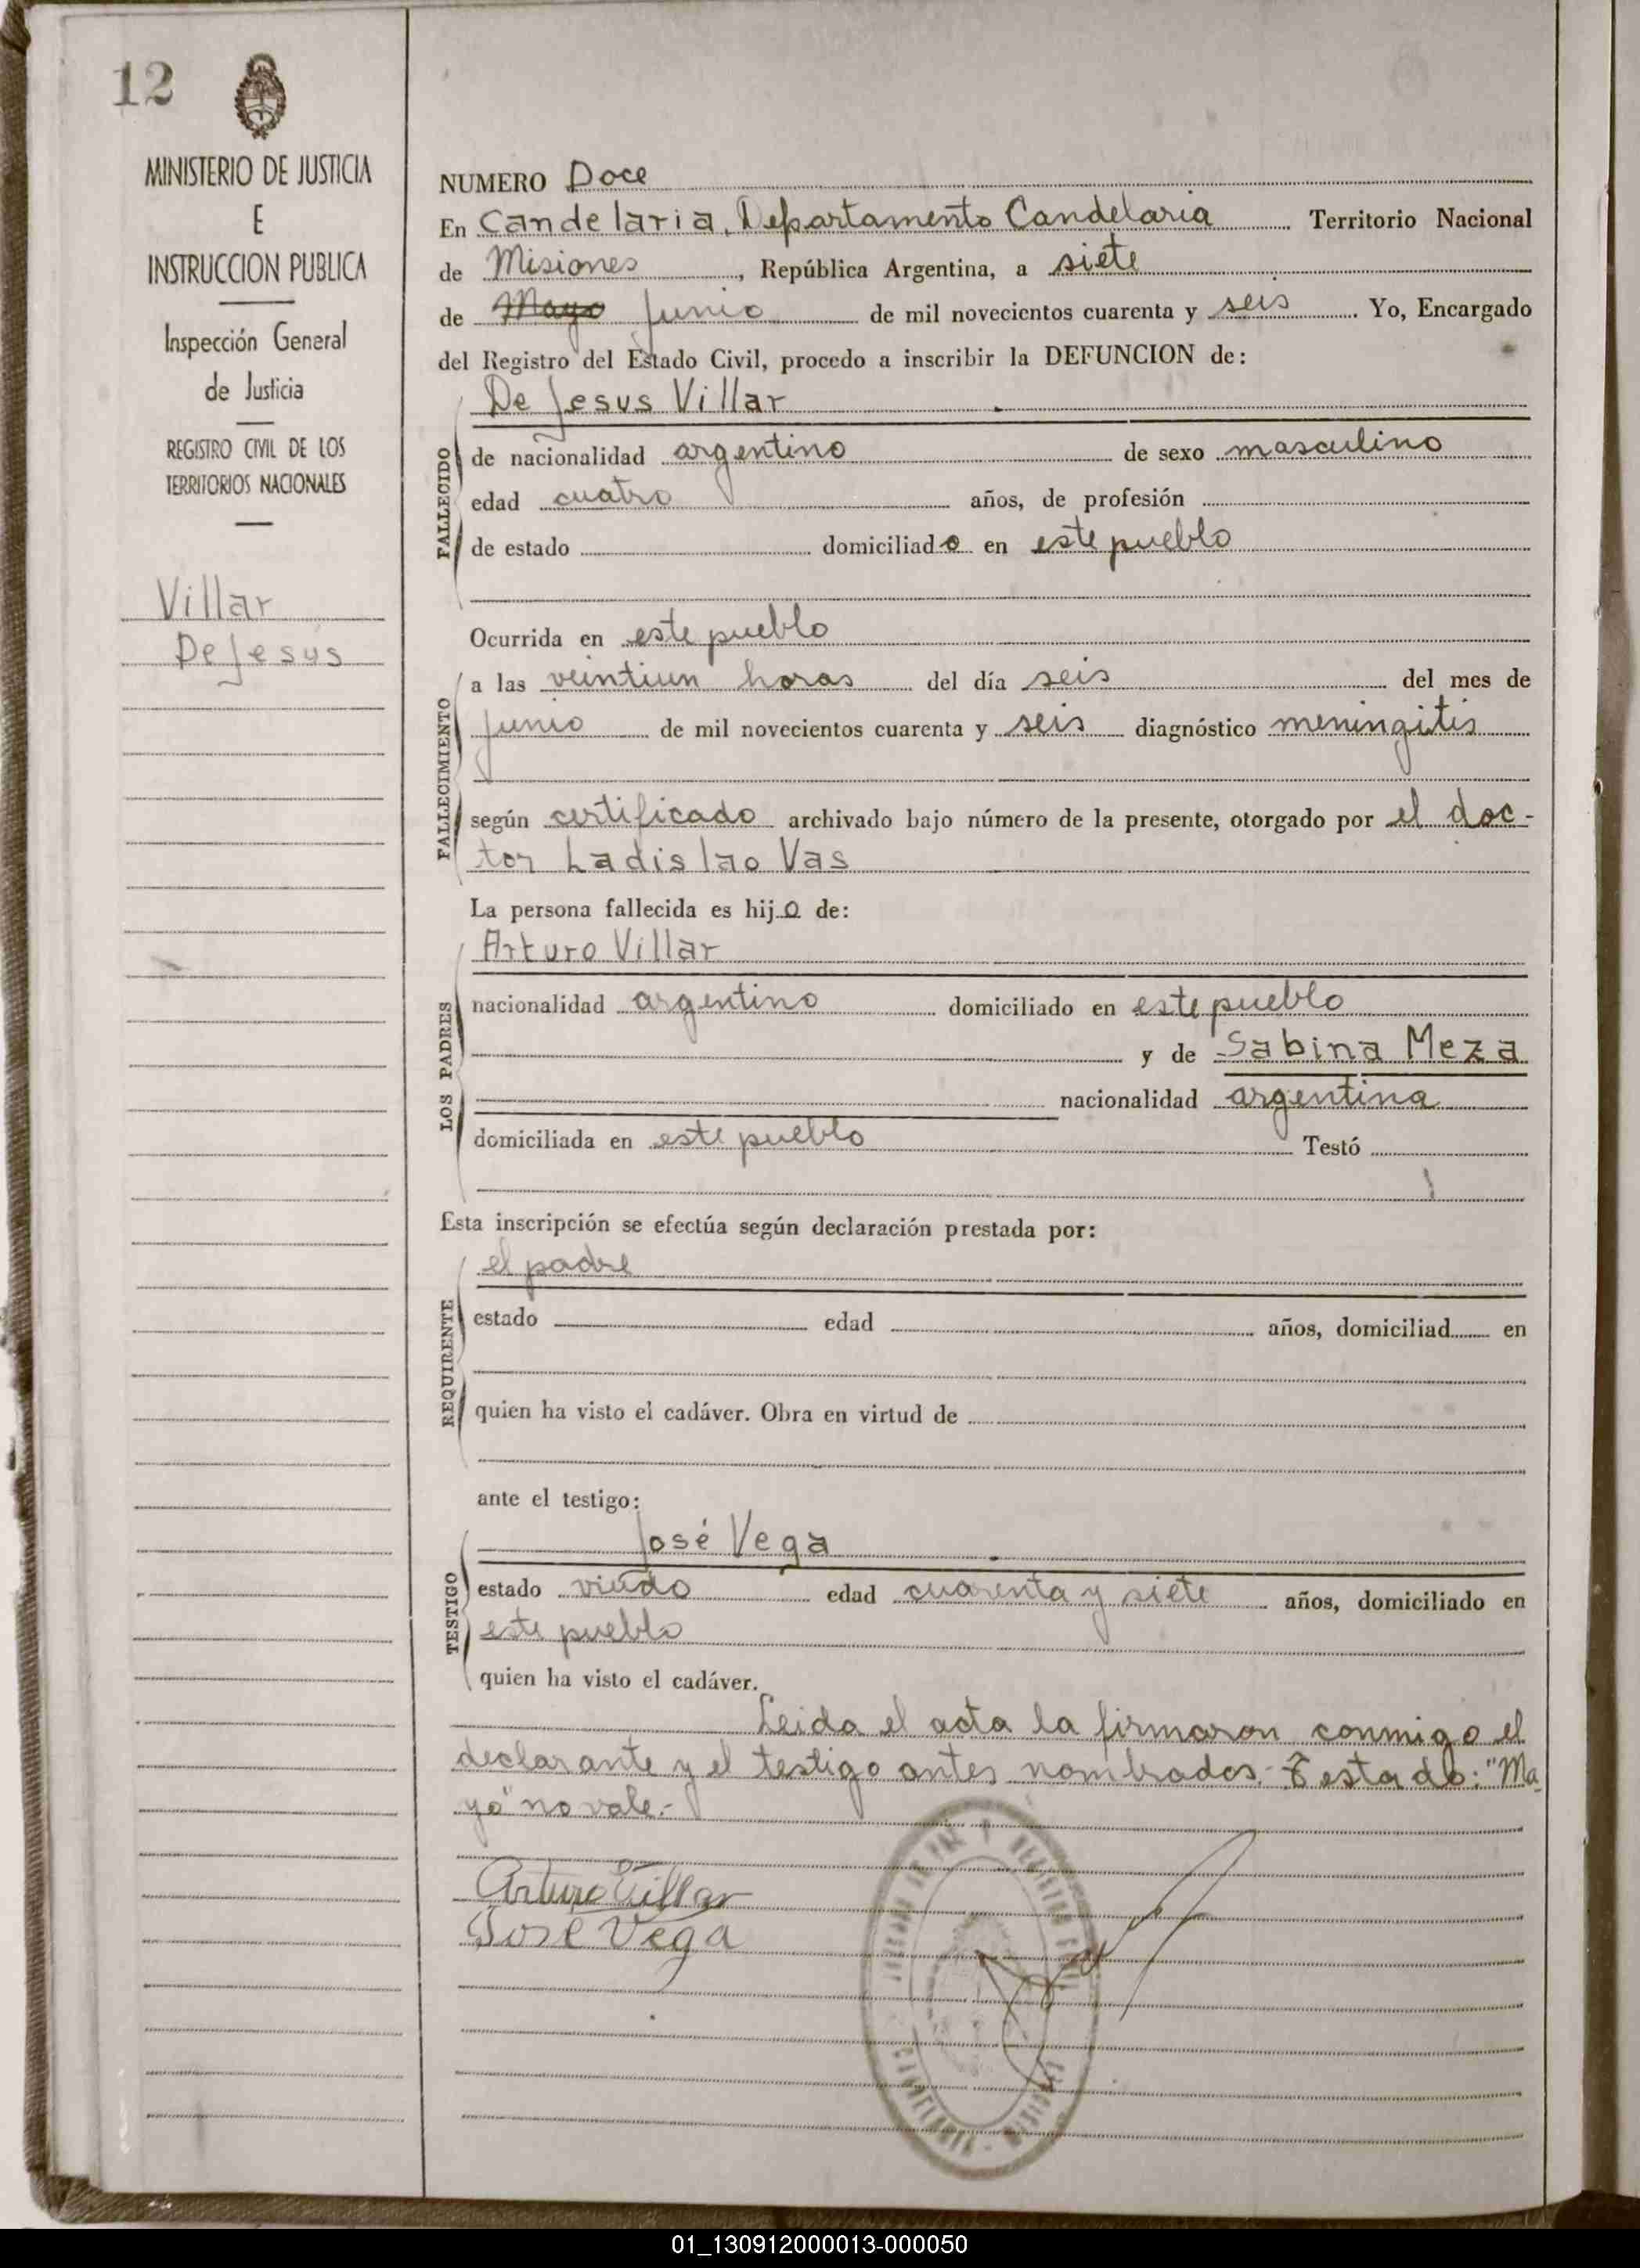 12
MINISTERIO DE JUSTICIA
E
INSTRUCCION PUBLICA
Inspección General
de Justicia
REGISTRO CIVIL DE LOS
TERRITORIOS NACIONALES
Villar
De Jesús
NUMERO Doce
En Candelaria, Departamento Candelaria Territorio Nacional
de Misiones, República Argentina, a siete
de Mayo Junio de mil novecientos cuarenta y seis. Yo, Encargado
del Registro del Estado Civil, procedo a inscribir la DEFUNCION de:
De Jesus Villar
FALLECIDO
de nacionalidad argentino de sexo masculino
edad cuatro años, de profesión
de estado domiciliado en este pueblo
Ocurrida en este pueblo
FALLECIMIENTO
a las veintiun horas del día seis del mes de
Junio de mil novecientos cuarenta y seis diagnóstico meningitis
según certificado archivado bajo número de la presente, otorgado por el doc-
tor Ladislao Vas
La persona fallecida es hijo de:
LOS PADRES
Arturo Villar
nacionalidad argentino domiciliado en este pueblo
y de Sabina Meza
nacionalidad argentina
domiciliada en este pueblo Testó
Esta inscripción se efectúa según declaración prestada por:
REQUIRENTE
el padre
estado edad años, domiciliad en
quien ha visto el cadáver. Obra en virtud de
ante el testigo:
TESTIGO
José Vega
estado viudo edad cuarenta y siete años, domiciliado en
este pueblo
quien ha visto el cadáver.
Leida el acta la firmaron conmigo el
declarante y el testigo antes nombrados.- Testado: "Ma
yo" no vale.-
Arturo Villar
José Vega
JUZGADO DE PAZ Y REGISTRO CIVIL
CANDELARIA - MISIONES
01_130912000013-000050